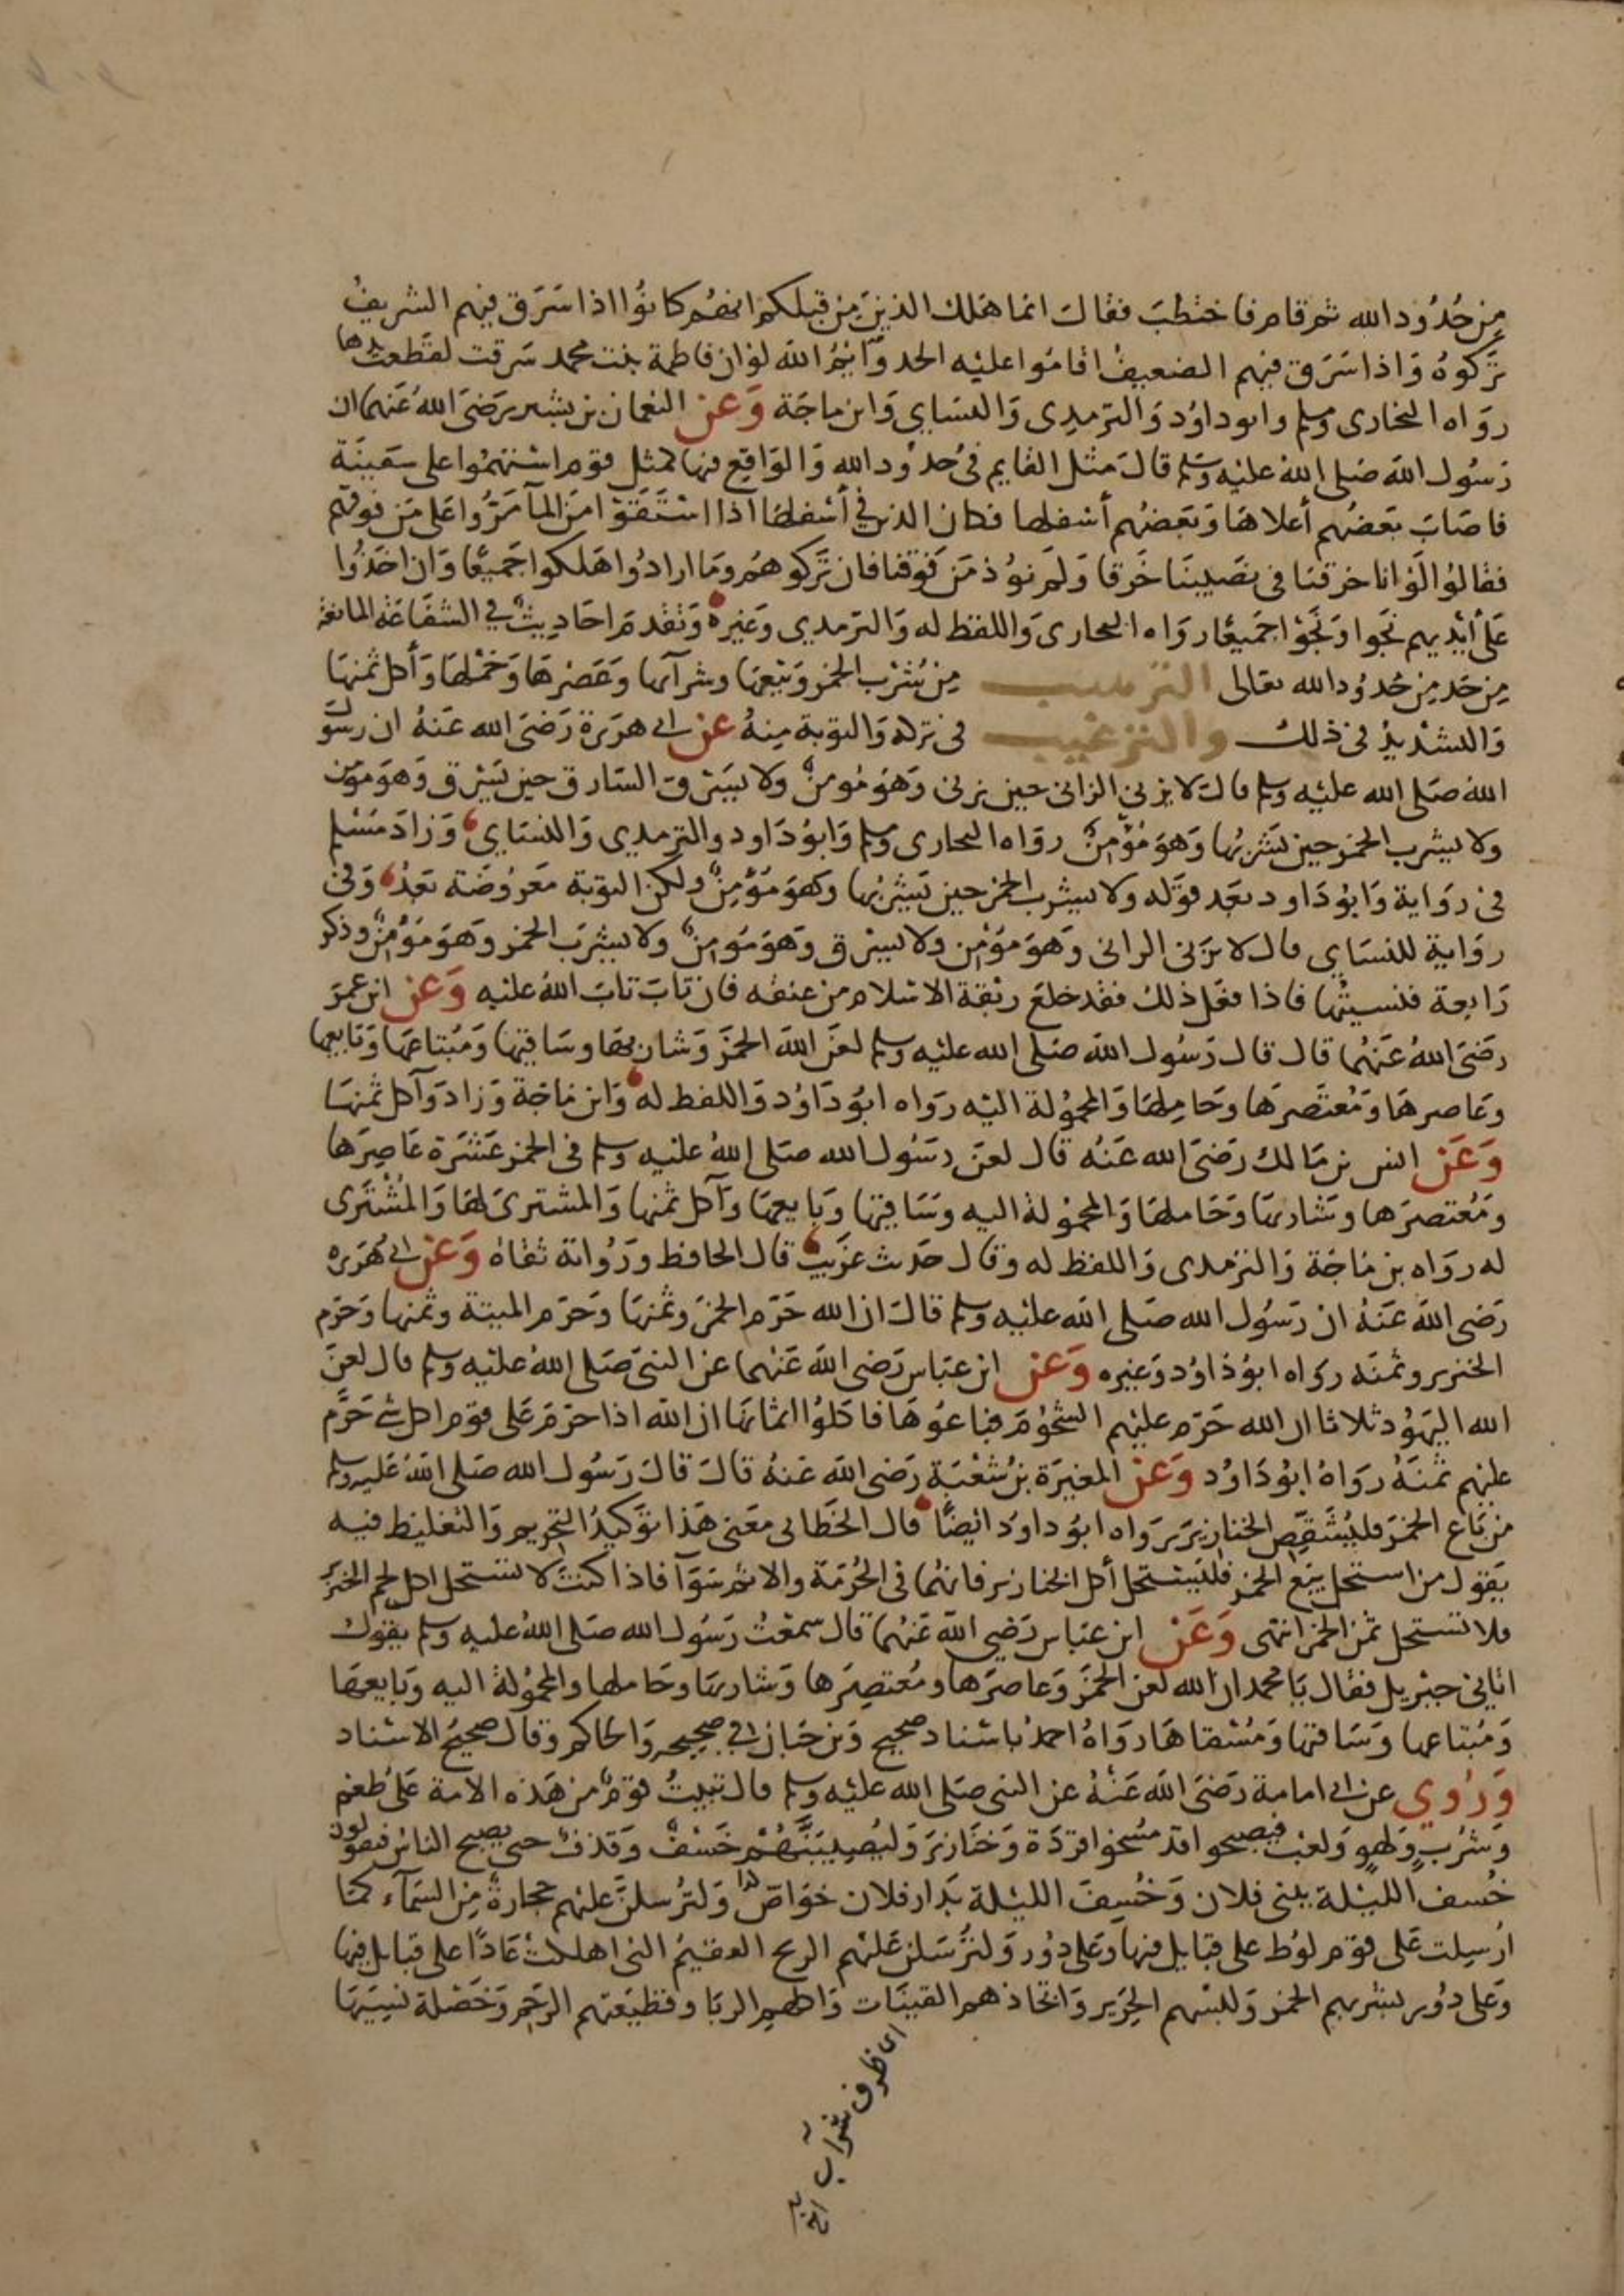 من حُدُود الله ثم قام فاختطب فقال انما هلك الذين من قبلكم انهم كانوا اذا سَرَق فيهم الشريفُ
تركوهُ وَاذا سَرَق فيهم الضعيفُ اقاموا عليْه الحد وَايْمُ الله لوْ ان فاطمة بنت محمد سَرقت لقطعت يدها
روَاه البخارى ومسلم وابو داوُد وَالترمِدِى وَالنسَاىِ وَابن ماجَة وَعَن النعمان بن بشير رَضىَ اللهُ عَنهما ان
رَسُول الله صَلى اللهُ عليْه وَسَلم قالَ مثل القايم فى حُدُود الله وَالوَاقِع فيها كمثل قوم اسْتهمُوا على سَفينَة
فاصَابَ بَعضهُم أعلاهَا وَبَعضهُم أسْفلها فكان الذين في أسْفلهَا اذا اسْتَقَوْا من المآ مَرُّوا عَلى مَن فوقهم
فقالوُا لَوْ انا خرقنا فى نصَيبنَا خَرقا وَلَم نوُذ مَن فَوْقنا فان تَرَكوهُم وَمَا ارادُوا هَلكوا جَميعًا وَان اخَذُوا
عَلىَ أيْديهم نَجَوا وَنَجَوْا جَميعًا روَاه البخارى وَاللفظ له وَالترمدي وَغيره وَتقْدم احَاديث في الشفَاعَة المانعة
من حَد من حُدوُد الله تعَالى الترهيب من شُرْب الخمر وَبَيْعها وشرآيها وعَصْرهَا وَحَمْلهَا وَأكل ثمنهَا
وَالتشْديدُ فى ذلك والترغيب فى تركه وَالتوبة مِنهُ عن ابى هرَيرة رَضىَ الله عَنهُ ان رسُول
الله صَلى الله عليْه وسلم قال لا يزنى الزانى حين يزنى وَهوَ مُومنٌ ولا يَسْرق السَارق حين يَسْرق وَهوَ مومن
ولا يشرب الخمرَ حين يَشربُها وَهوَ مُوْمِنٌ روَاه البخارى ومسلم وَابوُ دَاود والترمدي وَالنسَاي وَزادَ مسْلم
فى رِوَاية وَابوُ دَاود بَعد قوَله ولا يشرب الخمر حين يَشربُها وهوَ مُوْمِنٌ ولكن التوبة مَعروُضَة بَعدُ وَفى
روَاية للنسَاي قال لا يزَنى الزانى وَهوَ مَوْمن ولا يسرق وَهوَ مَوْمن ولا يشرَب الخمر وَهوَ مَوْمِنٌ وذكر
رَابعة فنسيتُها فاذا فعَل ذلك فقد خلعَ ربْقة الاسْلام من عنقه فان تابَ تابَ اللهُ عليْه وَعَن ابن عمرَ
رَضىَ اللهُ عَنهُما قال قال رَسُول الله صَلى الله عليْه وسلم لعَن الله الخمرَ وَشاربهَا وسَاقيها وَمُبتاعهَا وَبَايعها
وعَاصرهَا وَمُعتَصرهَا وحَامِلهَا وَالمحموُلة اليْه روَاه ابوُ دَاوُد وَاللفظ له وَابن مَاجَة وَزادَ وَآكل ثمنهَا
وَعَن انس بن مَالك رَضىَ الله عَنهُ قال لعنَ رسَوُل الله صَلى اللهُ عليْه وسلم فى الخمر عَشرَة عَاصِرَها
وَمُعتصرَها وشَاربهَا وَحَاملهَا وَالمحموُلة اليه وسَاقيها وَبايعهَا وَآكل ثمنها وَالمشترىَ لهَا وَالمشْترَى
له روَاه بن مَاجَة وَالترمدى وَاللفظ له وقال حَديث غرَيبٌ قال الحافظ ورُوُاته ثقاة وَعَن ابى هُرَيره
رَضى الله عَنهُ ان رَسُول الله صَلى الله عليْه وسلم قال ان الله حَرّم الخمَرَ وثمنهَا وَحَرّم الميتة وثمنها وَحَرّم
الخنزير وثمنَه روَاه ابوُ دَاوُد وَغيره وَعَن ابن عبَاس رَضى الله عَنهما عن النبىّ صَلى اللهُ عليْه وسلم قال لعن
الله اليَهوُد ثلاثا ان الله حَرّم عليْهم الشحُوُم فباعوُهَا فاكلوُا اثمانهَا ان الله اذا حرّم عَلى قوم اكل شى حَرَّم
عليْهم ثمنَهُ روَاهُ ابوُ دَاوُد وَعَن المغيرَة بن شُعْبَة رَضى الله عَنهُ قالَ قالَ رَسُول الله صَلى اللهُ عَليْه وسلم
من بَاع الخمرَ فليُشَقِّصِ الخنازيرَ روَاه ابوُ داودَ ايْضًا قال الخطابى معَنى هَذا توكيدُ التحريم وَالتغليظ فيه
يقول من استحل بَيْع الخمر فليَستحل أكل الخنازير فانهُما فى الحُرْمَة والاثم سَوَآ فاذا كنتَ لا تستحل اكل لحم الخنزير
فلا تستحل ثمن الخمر انتهى وَعَن ابن عبَاس رَضى الله عَنهُما قال سمعْتُ رَسُول الله صَلى اللهُ عليه وسلم يقول
اتانى جبْريل فقال يَا محمد ان الله لعن الخمرَ وَعاصرَها ومُعتصِرَها وَشاربهَا وحَاملها والمحموُلة اليه وَبايعهَا
وَمُبتاعها وَسَاقيها وَمُسْقاهَا روَاهُ احمدُ باسْناد صحيح وَبن حَبان في صحيحه وَالحاكم وقال صحيحُ الاسْناد
وَرُوي عن ابى امامة رَضىَ الله عَنْهُ عن النبى صَلى الله عليْه وسلم قال تبيتُ قومٌ من هَذه الامة عَلى طعم
وَشُربٍ وَلهوٍ وَلعب فيصبحوا قد مُسخوا قردَة وَخنازيرَ وَليُصِيبَنَّهُمْ خَسْفٌ وَقذفٌ حتى يصبح الناسُ فيقولون
خُسف الليْلة ببنى فلان وَخُسِفَ الليْلة بدَار فلان خوَاصّ وَلترُسلنَّ عليْهم حجارةٌ مِن السَمآء كما
ارُسِلت عَلى قوَم لوُط على قبايل فيها وَعَلى دوُر وَلترُسَلن عَليْهم الريح العقيمُ التى اهلكتْ عَادًا على قبايل فيها
وَعَلى دوُر بشربهم الخمر وَلبسْهم الحَرِير وَاتخاذهم القينَات وَاكلهم الربَا وقطيعَتهم الرحمِ وَخَصْلة نسِيَهَا
اى ظرف شرآب